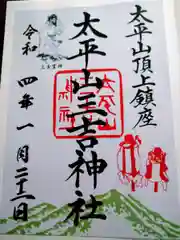 太平山頂上鎮座
太平山三吉神社
令和四年一月二十二日